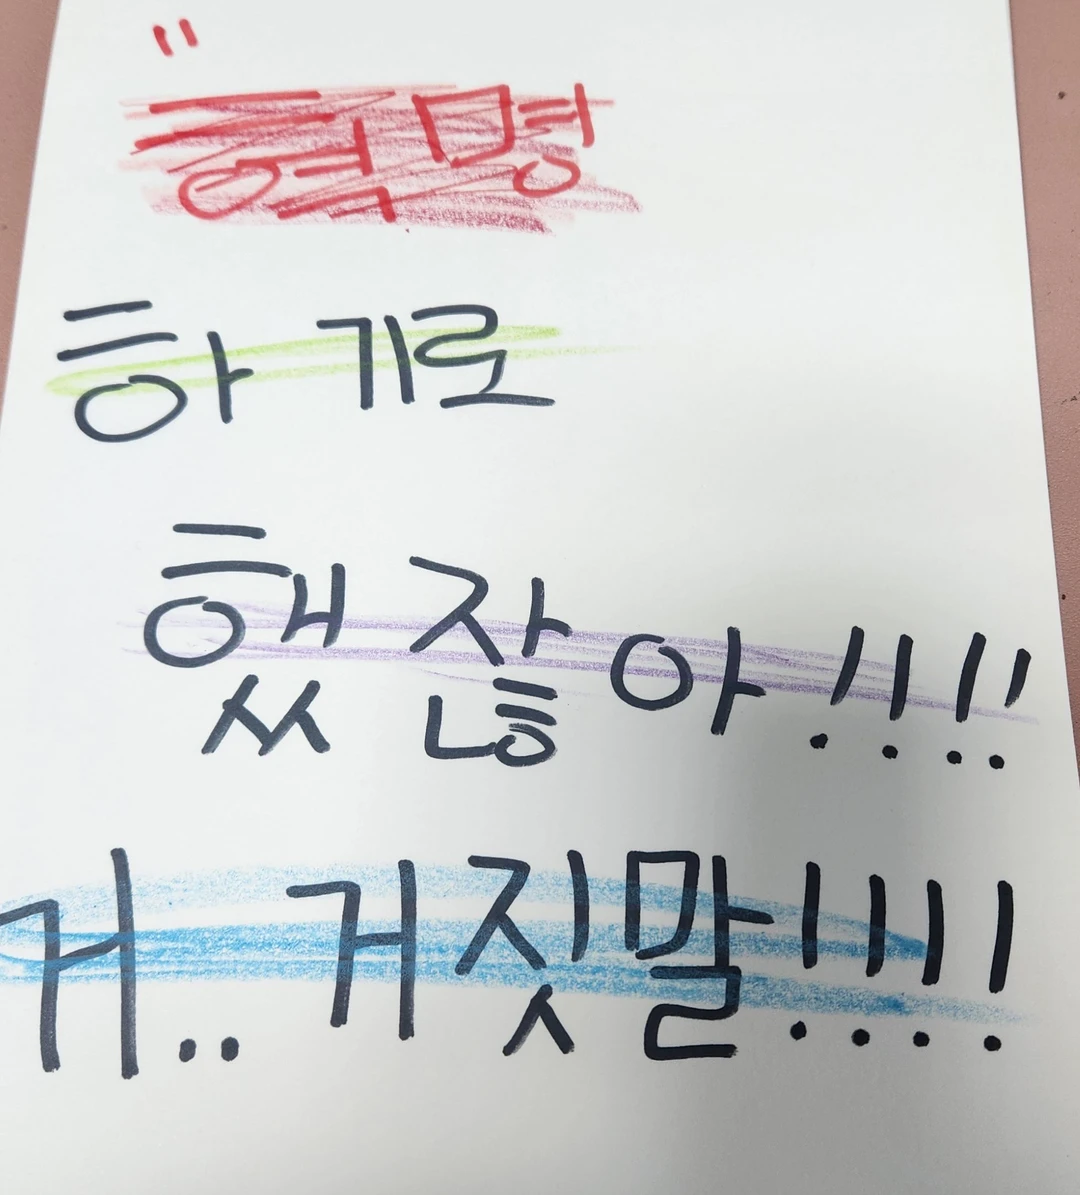 "
혁명
하기로
했잖아!!!!
거..거짓말!!!!